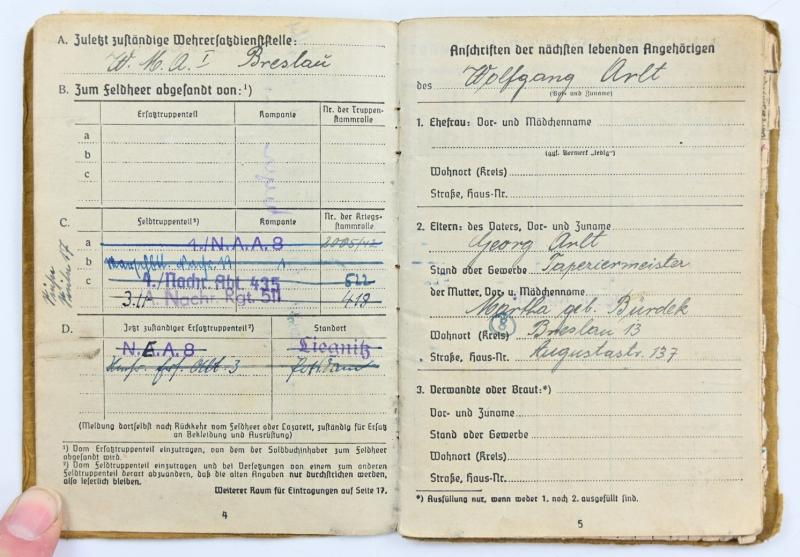 A. Zuletzt zuständige Wehrersatzdienststelle:
W. M. A. I Breslau
B. Zum Feldheer abgesandt von:¹)
Ersatztruppenteil Kompanie Nr. der Truppen-stammrolle
a
b
c
C. Feldtruppenteil²) Kompanie Nr. der Kriegs-stammrolle
a 4./N.A.A.8 2005/42
b
c 4./Nachr. Abt 435 622
3./A. Nachr. Rgt. 511 419
D. Jetzt zuständiger Ersatztruppenteil²) Standort
N.E.A.8 Liegnitz
3 Potsdam
(Meldung dortselbst nach Rückkehr vom Feldheer oder Lazarett, zuständig für Ersatz
an Bekleidung und Ausrüstung)
¹) Vom Ersatztruppenteil einzutragen, von dem der Soldbuchinhaber zum Feldheer
abgesandt wird.
²) Vom Feldtruppenteil einzutragen und bei Versetzungen von einem zum anderen
Feldtruppenteil derart abzuändern, daß die alten Angaben nur durchstrichen werden,
also leserlich bleiben.
Weiterer Raum für Eintragungen auf Seite 17.
4
Anschriften der nächsten lebenden Angehörigen
des Wolfgang Arlt
(Vor- und Zuname)
1. Ehefrau: Vor- und Mädchenname
(ggf. Vermerk „ledig")
Wohnort (Kreis)
Straße, Haus-Nr.
2. Eltern: des Vaters, Vor- und Zuname
Georg Arlt
Stand oder Gewerbe Tapeziermeister
der Mutter, Vor- u. Mädchenname
Martha geb. Bürdek
Wohnort (Kreis) 8 Breslau 13
Straße, Haus-Nr. Augustastr. 137
3. Verwandte oder Braut:*)
Vor- und Zuname
Stand oder Gewerbe
Wohnort (Kreis)
Straße, Haus-Nr.
*) Ausfüllung nur, wenn weder 1. noch 2. ausgefüllt sind.
5